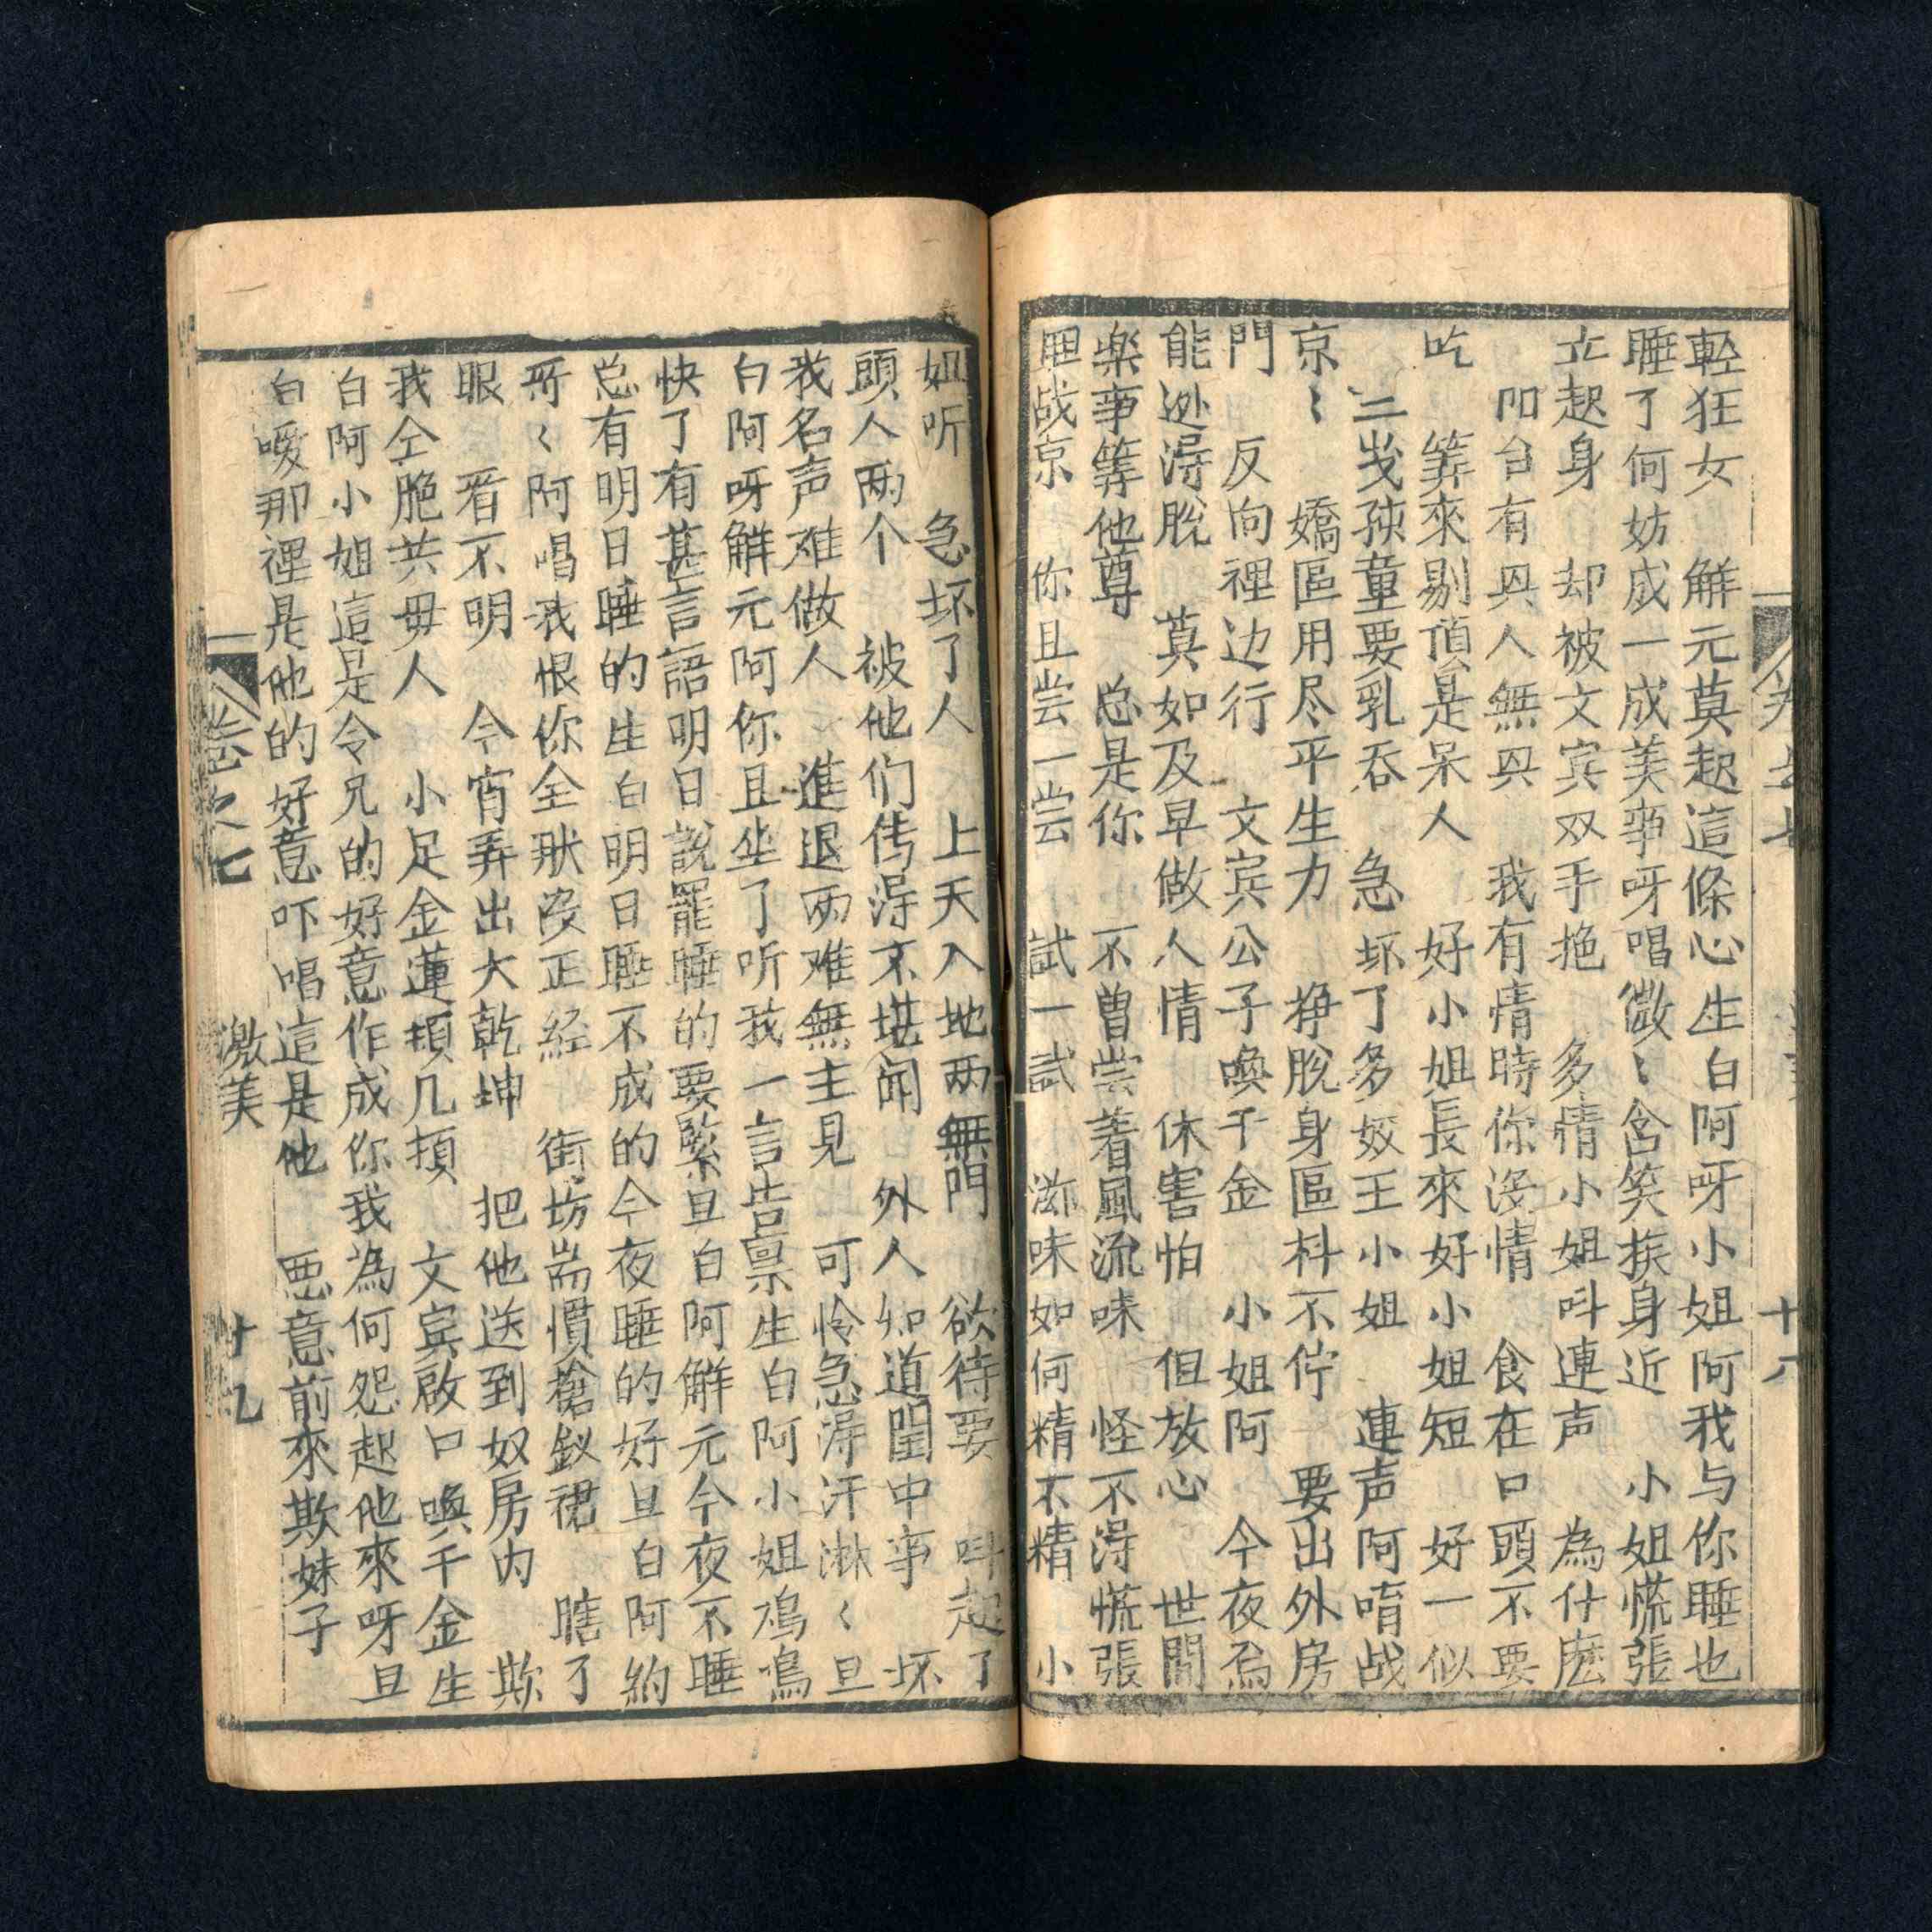 輕狂女　解元莫起這條心生白阿呀小姐阿我与你睡也
睡了何妨成一成美事呀唱微〻含笑挨身近　小姐慌張
立起身　却被文宾双手抱　多情小姐叫連声　為什庅
阳台有兴人無兴　我有情時你没情　食在口頭不要
吃　筭來剔頂是呆人　好小姐長來好小姐短　好一似
三岁孩童要乳吞　急坏了多姣王小姐　連声阿唷战
京〻　嬌區用尽平生力　挣脫身區枓不佇　要出外房
門　反向裡边行　文宾公子喚千金　小姐阿　今夜焉
能逊淂脫　莫如及早做人情　休害怕　但放心　世間
楽事筭他尊　总是你　不曽尝着風流味　怪不淂慌張
胆战京　你且尝一尝　試一試　滋味如何精不精　小
姐听　急坏了人　上天入地两無門　欲待要　叫起了
頭人两个　被他们传淂不堪闻　外人如道閨中事　坏
我名声难做人　進退两难無主見　可怜急淂汗淋〻旦
白阿呀觧元阿你且坐了听我一言告禀生白阿小姐鳮鳥
快了有甚言語明日說罷睡的要緊旦白阿觧元今夜不睡
总有明日睡的生白明日睡不成的今夜睡的好旦白阿約
哥〻阿唱我恨你全狀没正経　街坊耑慣搶釵裙　瞎了
眼　看不明　今宵弄出大乾坤　把他送到奴房内　欺
我仝胞共毋人　小足金蓮頓几頓　文宾啟口喚千金生
白阿小姐這是令兄的好意作成你我為何怨起他來呀旦
白噯那裡是他的好意吓唱這是他　悪意前來欺妹子
卷之七　激美　十九